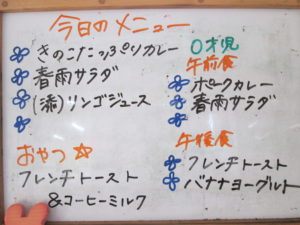 今日のメニュー
きのこたっぷりカレー
春雨サラダ
(添)リンゴジュース
おやつ☆
フレンチトースト
&コーヒーミルク
0才児
午前食
ポークカレー
春雨サラダ
午後食
フレンチトースト
バナナヨーグルト